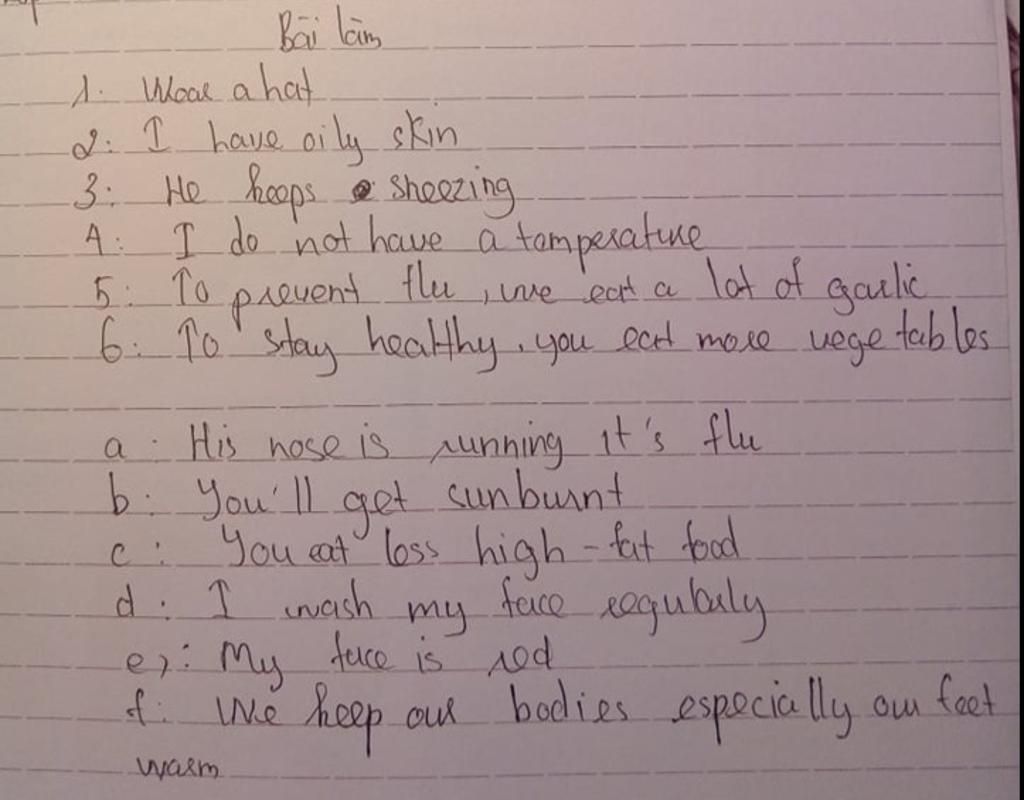 Bài làm
1. Wear a hat
2: I have oily skin
3: He keeps sneezing
4: I do not have a temperature
5: To prevent flu, we eat a lot of garlic
6: To stay healthy, you eat more vegetables
a: His nose is running it's flu
b: You'll get sunburnt
c: You eat less high-fat food
d: I wash my face regularly
e,: My face is red
f: We keep our bodies especially our feet
warm